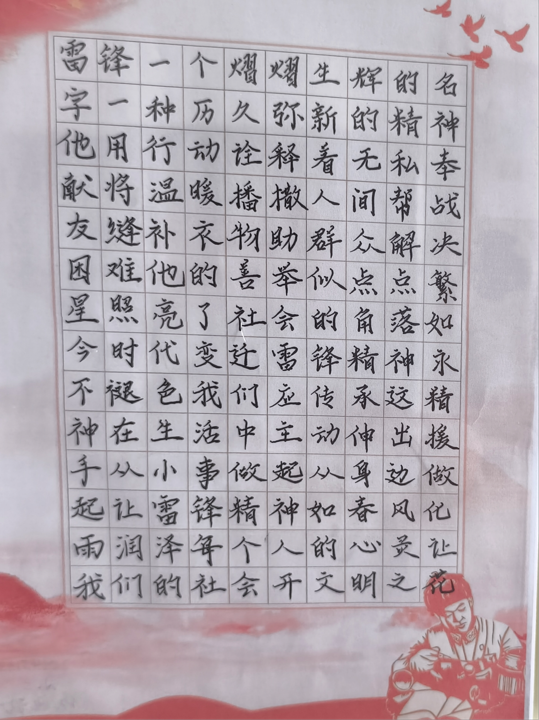 雷锋一个熠熠生辉的名
字一种历久弥新的精神
他用行动诠释着无私奉
献将温暖播撒人间帮战
友缝补衣物助群众解决
困难他的善举似点点繁
星照亮了社会的角落如
今时代变迁雷锋精神永
不褪色我们应传承这精
神在生活中主动伸出援
手从小事做起从身边做
起让雷锋精神如春风化
雨润泽每个人的心灵让
我们的社会开文明之花